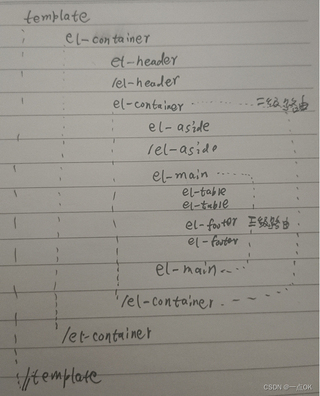 template
el-container
el-header
/el-header
el-container 二级路由
el-aside
/el-aside
el-main
el-table
el-table
el-footer 三级路由
el-footer
el-main
/el-container
/el-container
//template
CSDN @一点OK